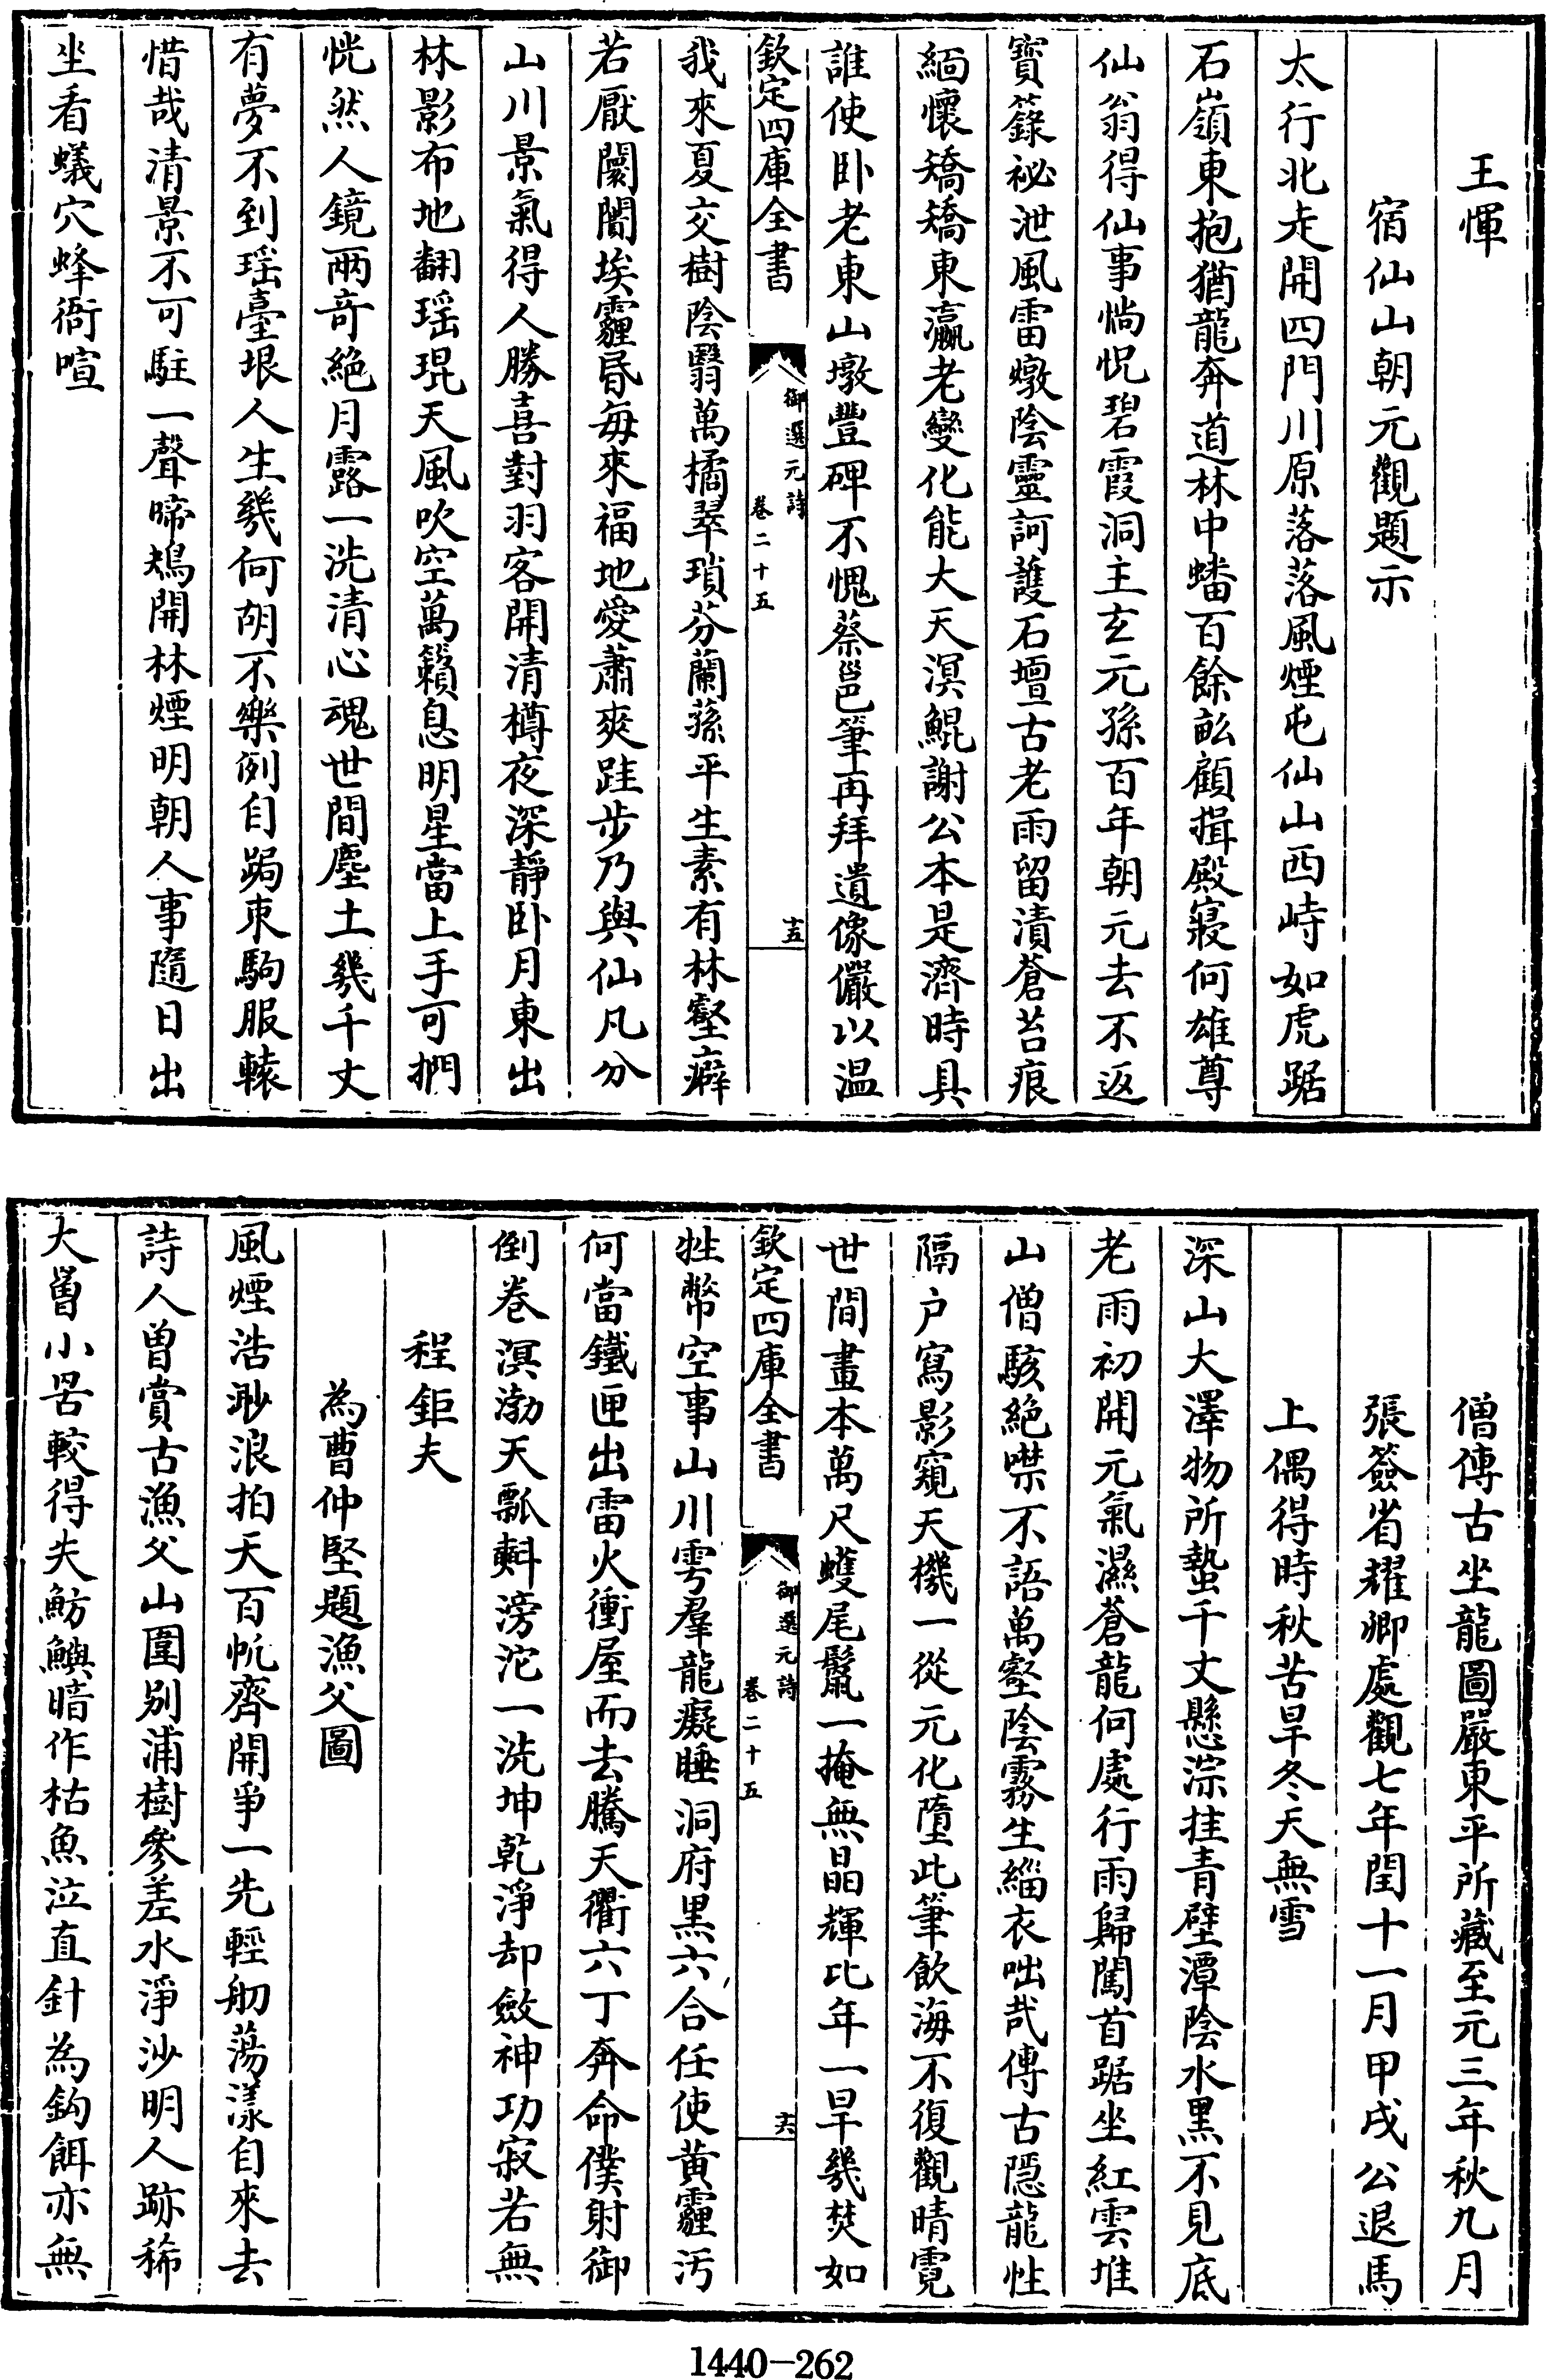 王惲
宿仙山朝元觀題示
太行北走開四門川原落落風煙屯仙山西峙如虎踞
石嶺東抱猶龍奔道林中蟠百餘畝顧揖殿寢何雄尊
仙翁得仙事惝怳碧霞洞主玄元孫百年朝元去不返
寶籙祕泄風雷燉陰靈訶護石壇古老雨留漬蒼苔痕
緬懷矯矯東瀛老變化能大天溟鯤謝公本是濟時具
誰使卧老東山墩豐碑不愧蔡邕筆再拜遺像儼以温
欽定四庫全書
御選元詩
卷二十五
十五
我來夏交樹陰翳萬橘翠瑣芬蘭蓀平生素有林壑癖
若厭闤闠埃霾昬每來福地愛蕭爽跬步乃與仙凡分
山川景氣得人勝喜對羽客開清樽夜深靜卧月東出
林影布地翻瑶琨天風吹空萬籟息明星當上手可捫
恍然人鏡兩竒絶月露一洗清心魂世間塵土幾千丈
有夢不到瑶臺垠人生幾何胡不樂例自跼束駒服轅
惜哉清景不可駐一聲啼鴂開林煙明朝人事隨日出
坐看蟻穴蜂衙喧
僧傳古坐龍圖嚴東平所藏至元三年秋九月
張簽省耀卿處觀七年閏十一月甲戌公退馬
上偶得時秋苦旱冬天無雪
深山大澤物所蟄千丈懸淙挂青壁潭陰水黒不見底
老雨初開元氣濕蒼龍何處行雨歸闖首踞坐紅雲堆
山僧駭絶噤不語萬壑陰霧生緇衣咄哉傳古隠龍性
隔户寫影窺天機一從元化墮此筆飲海不復觀晴霓
世間畫本萬尺蠖尾鬛一掩無晶輝比年一旱幾焚如
欽定四庫全書
御選元詩
卷二十五
十六
牲幣空事山川雩羣龍癡睡洞府黒六合任使黄霾汚
何當鐵匣出雷火衝屋而去騰天衢六丁奔命僕射御
倒卷溟渤天瓢㪺滂沱一洗坤乾淨却斂神功寂若無
程鉅夫
為曹仲堅題漁父圖
風煙浩渺浪拍天百帆齊開爭一先輕舠蕩漾自來去
詩人曽賞古漁父山圍别浦樹參差水淨沙明人跡稀
大罾小罟較得失魴鱮暗作枯魚泣直針為鈎餌亦無
1440-262